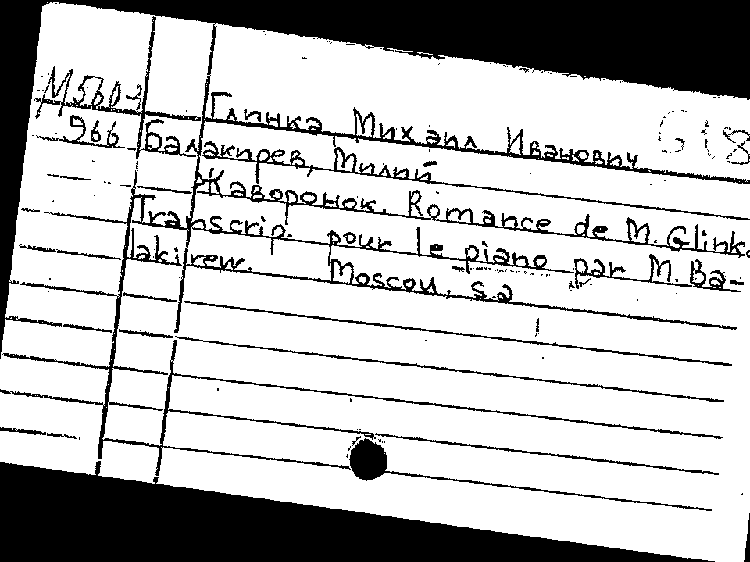 M560-3 Глинка, Михаил Иванович G18
966 Балакирев, Милий
Жаворонок. Romance de M. Glinka.
Transcrip. pour le piano par M. Ba-
lakirew. Moscou, s.a